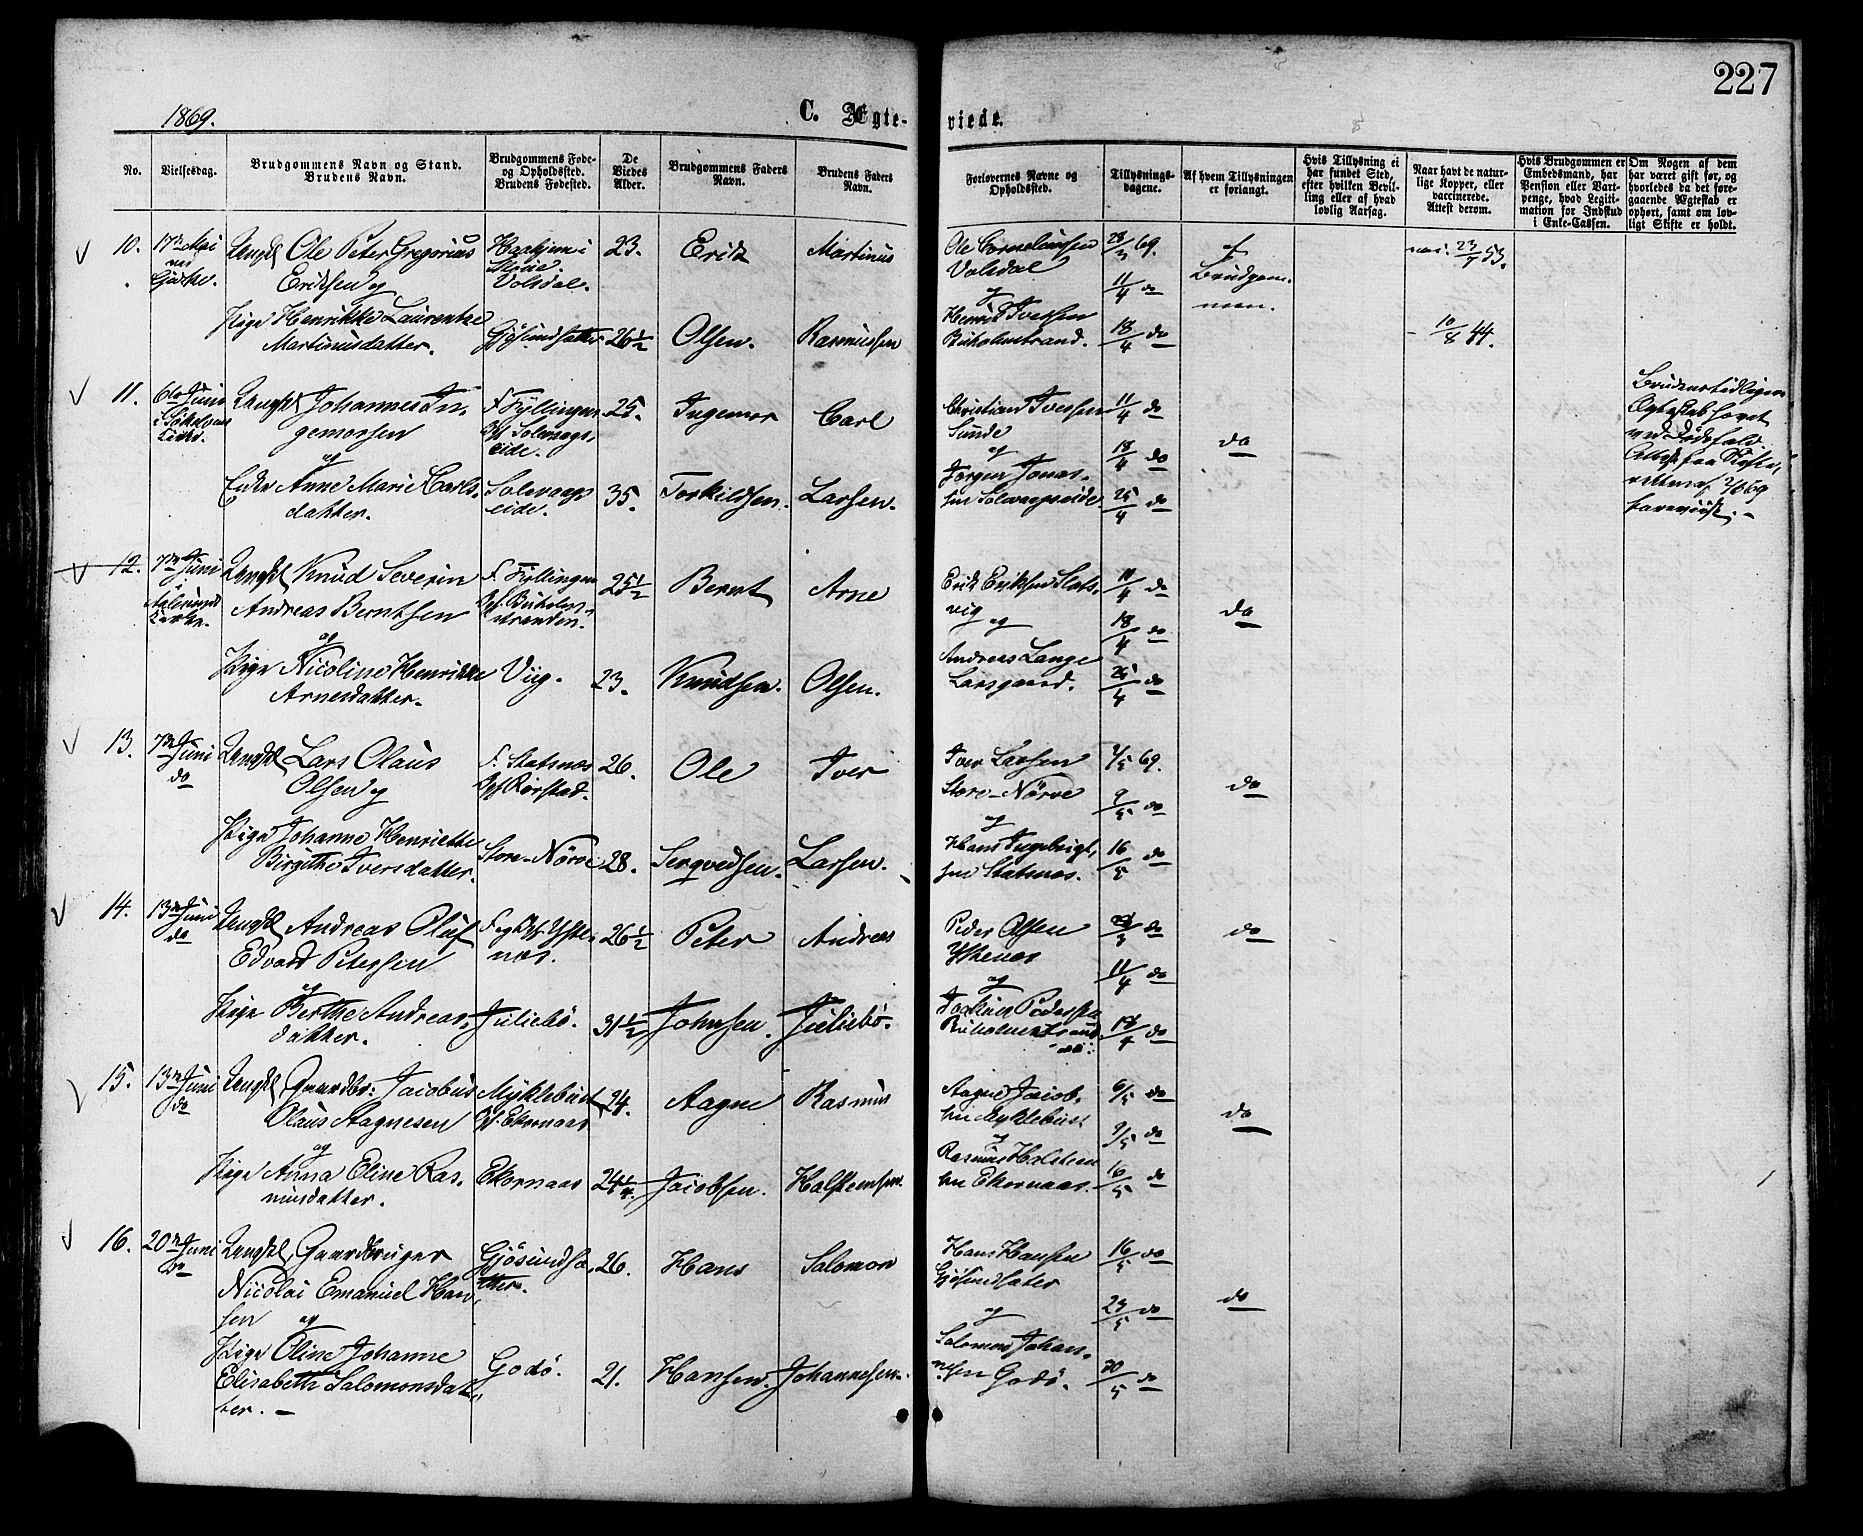 227
1869.
C. Ægte-
viede.
No.
Vielsesdag.
Brudgommens Navn og Stand.
Brudens Navn.
Brudgommens Føde-
og Opholdssted.
Brudens Fødested.
De
Viedes
Alder.
Brudgommens Faders
Navn.
Brudens Faders
Navn.
Forlovernes Navne og
Opholdssted.
Tillysnings-
dagene.
Af hvem Tillysningen
er forlangt.
Hvis Tillysning ei
har fundet Sted,
efter hvilken Bevil-
ling eller af hvad
lovlig Aarsag.
Naar havt de natur-
lige Kopper, eller
vaccinerede.
Attest derom.
Hvis Brudgommen er
Embedsmand, har
Pension eller Vart-
penge, hvad Legiti-
mation for Indskud
i Enke-Cassen.
Om Nogen af dem
har været gift før, og
hvorledes da det fore-
gaaende Ægteskab er
ophørt, samt om lov-
ligt Skifte er holdt.
10.
17de Mai
Ungkl Ole Peter Gregorius
Eriksen og
Pige Henrikke Laurentze
Martinusdatter.
Volsdal.
Gjøsundsætter
23.
26½
Erik
Olsen.
Martinus
Rasmussen
Ole Corneliussen
Volsdal
og
Henrik Iversen
Buholmstrand.
28/3 69.
11/4 do
18/4 do
af
Brudgom-
men.
23/7 53.
10/8 44.
11.
6te Juni
Ungkl Johannes In-
gemorsen
og
Enke Anne Marie Carls-
datter.
F. Fyllingen
Of Solevaags-
eide.
Solevaags
eide.
25.
35.
Ingemor
Torkildsen.
Carl
Larsen.
Christian Iversen
Sunde
og
Jørgen Jonas-
sen Solevaagseide.
11/4 do
18/4 do
25/4 do
do
Brudens tidligere
Ægteskab hævet
ved Dødsfald.
Attest fra Skifte-
retten af 2/4 69
forevist. -
12.
7de Juni
i
Aalesunds
Kirke.
Ungkl Knud Severin
Andreas Berntsen
og
Pige Nicoline Henrikke
Arnesdatter.
F. Fyllingen
Of. Buholm-
stranden.
Viig.
25½
23.
Bernt
Knudsen.
Arne
Olsen.
Erik Eriksen Slets-
vig og
Andreas Lange
Larsgaard.
11/4 do
18/4 do
25/4 do
do
13.
7de Juni
do
Ungkl Lars Olaus
Olsen og
Pige Johanne Henriette
Birgitte Iversdatter.
F. Slatsnes
Of Rørstad.
Store-Nørve
26.
28.
Ole
Serqvedsen.
Iver
Larsen.
Iver Larsen
Store-Nørve
og
Hans Ingebrigt-
sen Slatsnes.
2/5 69.
9/5 do
16/5 do
do
14.
13de Juni
do
Ungkl Andreas Oluf
Edvard Petersen
og
Pige Berthe Andreas-
datter.
F. og Of. Yste-
nes.
Juliebø.
26½
31½
Peter
Johnsen.
Andreas
Juliebø.
Peder Olsen
Ystenes
og
Pedersen
Buholmstrand
28/3 do
11/4 do
18/4 do
do
15.
13de Juni
do
Ungkl Gaardbr: Jacobus
Olaus Aagnesen
og
Pige Anna Eline Ras-
musdatter.
Myklebust
Of. Ekornaas
Ekornaas
24.
24¼
Aagne
Jacobsen.
Rasmus
Halstensen.
Aagne Jacob-
sen Myklebust
og
Rasmus Halsten
sen Ekornaas.
6/5 do
9/5 do
16/5 do
do
16.
20de Juni
do
Ungkl, Gaardbruger
Nicolai Emanuel Han-
sen og
Pige Oline Johanne
Elisabeth Salomonsdat-
ter. -
Gjøsundsæ-
tter.
Godø.
26.
21.
Hans
Hansen.
Salomon
Johannesen.
Hans Hansen
Gjøsundsæter
og
Salomon Johan-
nesen Godø.
16/5 do
23/5 do
30/5 do
do